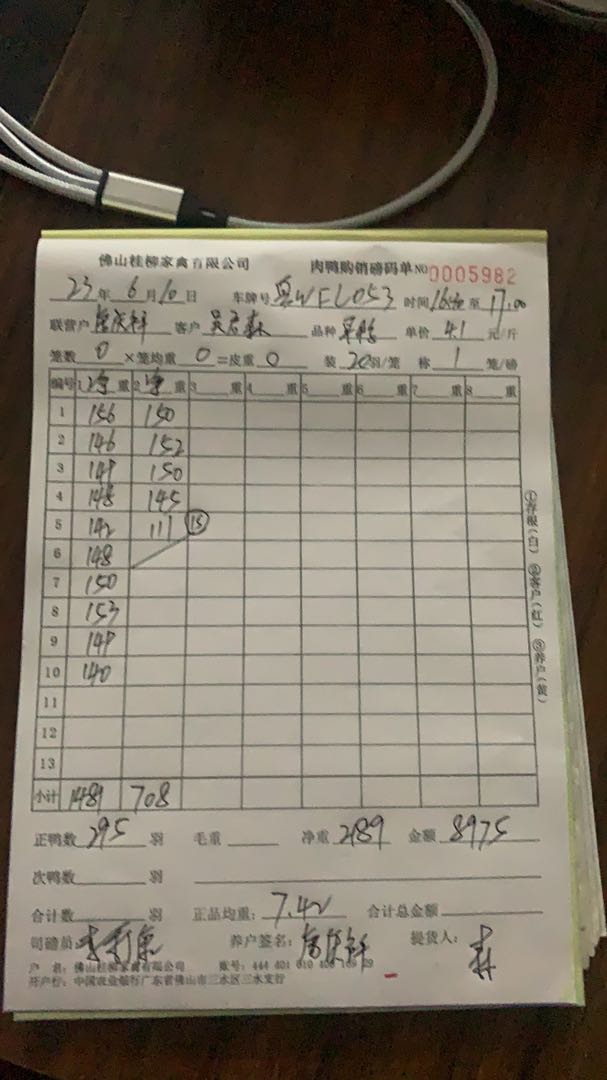 佛山桂柳家禽有限公司 肉鸭购销磅码单 NO 0005982
23年 6月10日 车牌号 粤WFL053 时间 16:40 至 17:00
联营户 客户 吴 森 品种 单价 4.1 元/斤
笼数 0 ×笼均重 0 =皮重 0 装 20 羽/笼 称 1 笼/磅
编号 1 净 重 2 净 重 3 重 4 重 5 重 6 重 7 重 8 重
1 156 150
2 146 152
3 149 150
4 148 145
5 142 111 15
6 148
7 150
8 153
9 149
10 140
11
12
13
小计 1481 708
正鸭数 295 羽 毛重 净重 2189 金额 8975
次鸭数 羽
合计数 羽 正品均重： 7.42 合计总金额
司磅员： 养户签名： 提货人： 森
户 名：佛山桂柳家禽有限公司 账号：444 401 010 400 169 29
开户行：中国农业银行广东省佛山市三水区三水支行
①存根（白） ②客户（红） ③养户（黄）